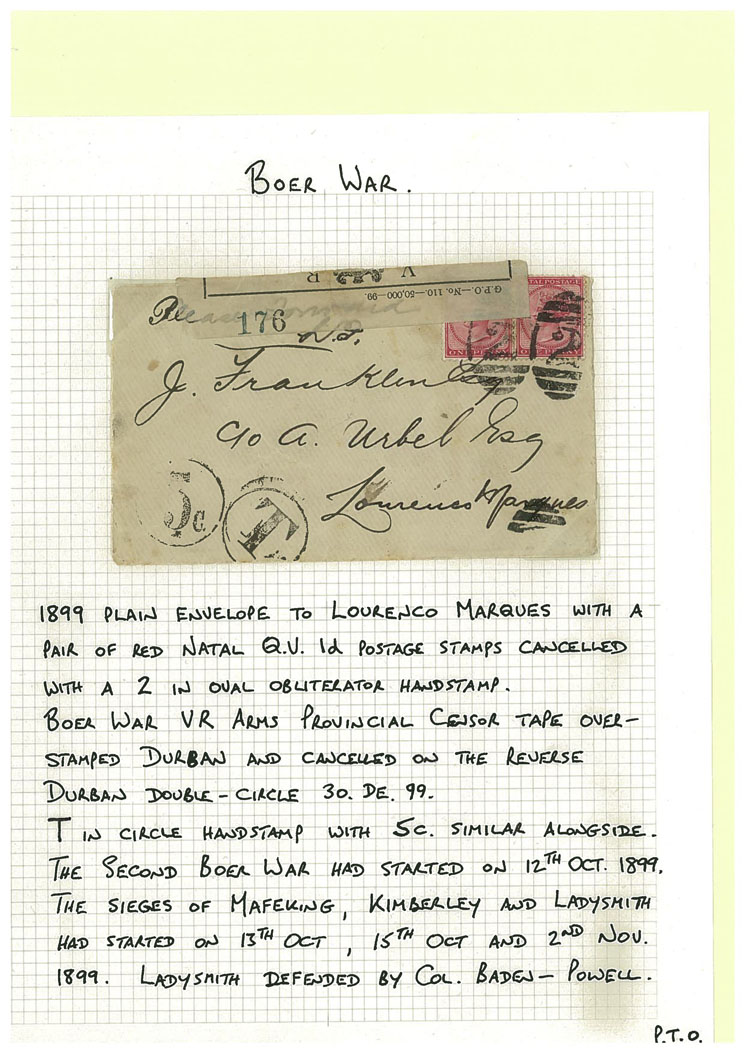 BOER WAR.
V R
G.P.O.—No. 110—50,000-99.
Please forward
176
N.P.
TAL POSTAGE
J. Franklin Esq
c/o A. Urbel Esq
Lourenco Marques
5c
T
1899 PLAIN ENVELOPE TO LOURENCO MARQUES WITH A
PAIR OF RED NATAL Q.V. 1d POSTAGE STAMPS CANCELLED
WITH A 2 IN OVAL OBLITERATOR HANDSTAMP.
BOER WAR VR ARMS PROVINCIAL CENSOR TAPE OVER-
STAMPED DURBAN AND CANCELLED ON THE REVERSE
DURBAN DOUBLE-CIRCLE 30. DE. 99.
T IN CIRCLE HANDSTAMP WITH 5c. SIMILAR ALONGSIDE.
THE SECOND BOER WAR HAD STARTED ON 12TH OCT. 1899.
THE SIEGES OF MAFEKING, KIMBERLEY AND LADYSMITH
HAD STARTED ON 13TH OCT, 15TH OCT AND 2ND NOV.
1899. LADYSMITH DEFENDED BY COL. BADEN-POWELL.
P.T.O.